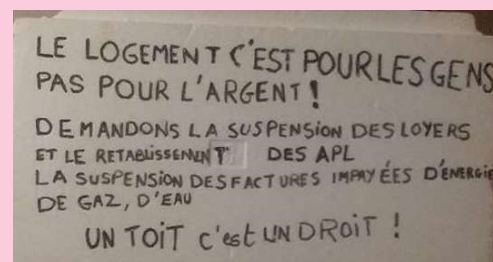 LE LOGEMENT C'EST POUR LES GENS
PAS POUR L'ARGENT !
DEMANDONS LA SUSPENSION DES LOYERS
ET LE RETABLISSEMENT DES APL
LA SUSPENSION DES FACTURES IMPAYÉES D'ÉNERGIE
DE GAZ, D'EAU
UN TOIT c'est UN DROIT !